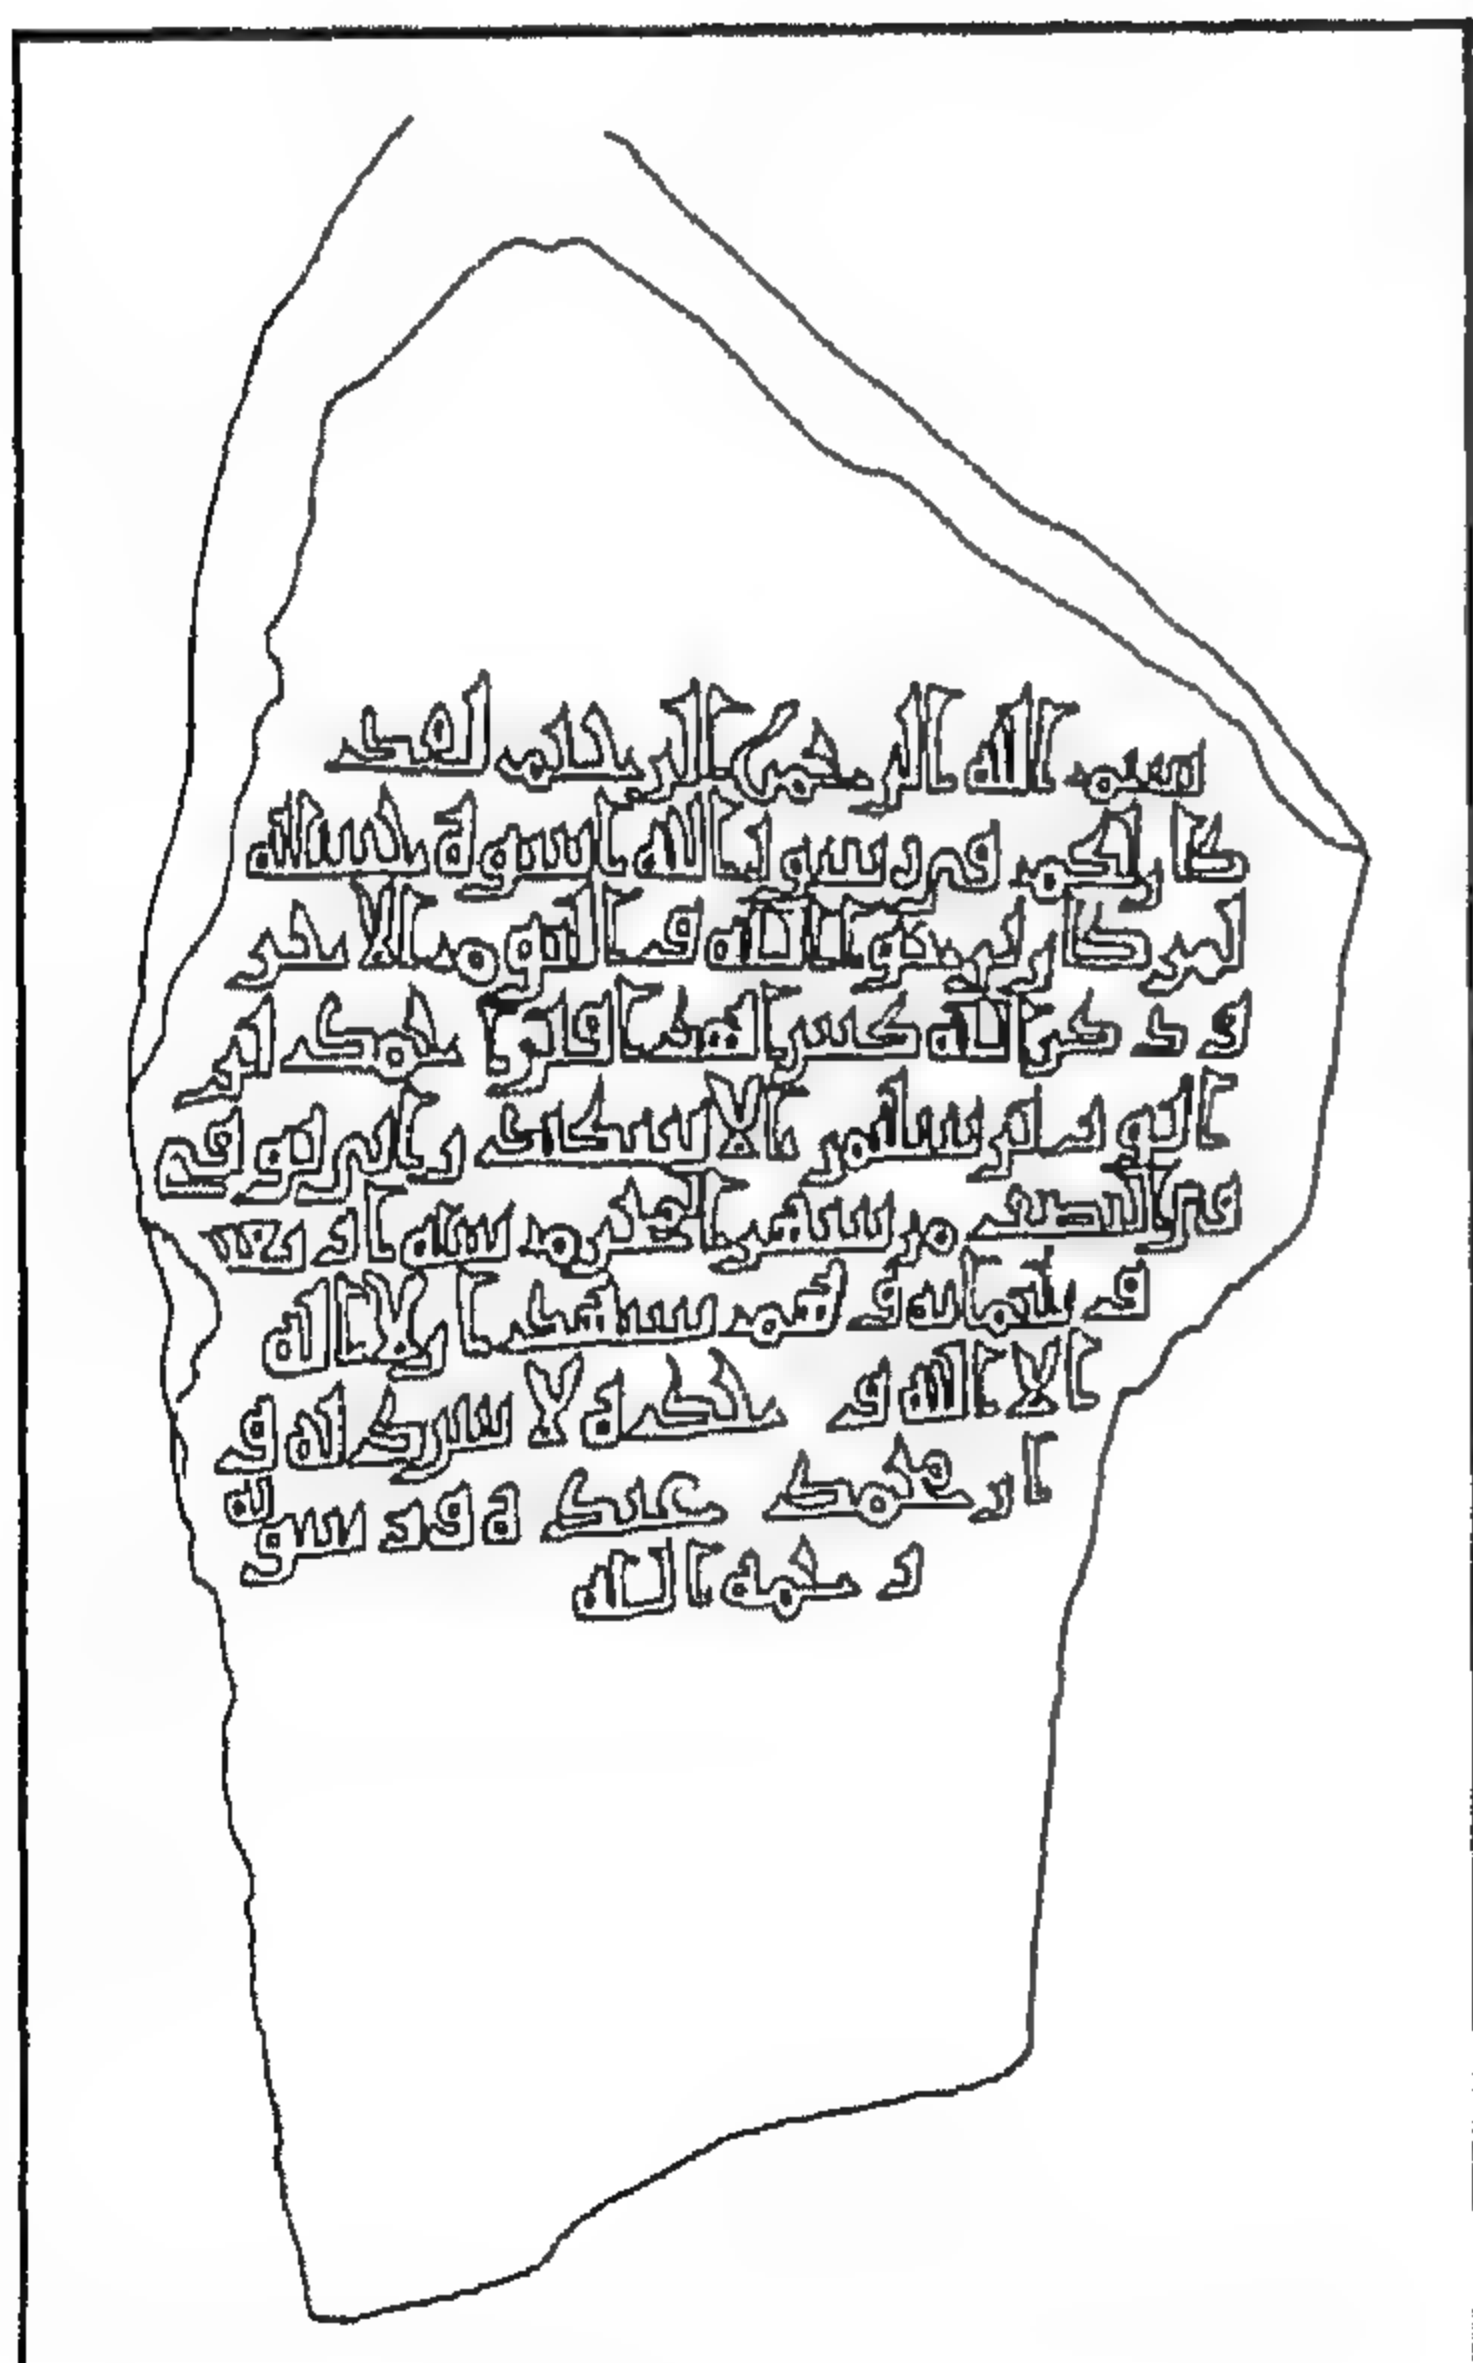 بسم الله الرحمن الرحيم لقد
كان لكم في رسول الله اسوة حسنة
لمن كان يرجوا الله و اليوم الاخر
و ذكر الله كثيرا هذا قبر محمد ابن
سليمن الاسكندراني توفي
في النصف من شهر المحرم سنة
وهو يشهد ان لا اله
الا الله و حده لا شريك له و
ان محمد عبده و رسوله
رحمة الله